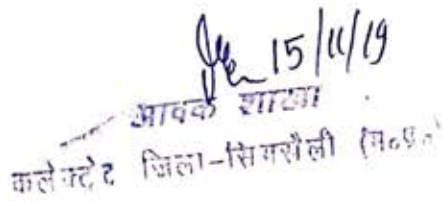 15/11/19
आवक शाखा
कलेक्ट्रेट जिला-सिंगरौली (म०प्र०)